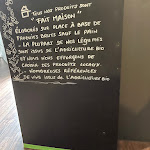 Tous nos produits sont
"FAIT MAISON"
Elaborés sur place à base de
produits bruts sauf le pain
- La plupart de nos légumes
sont issus de l'agriculture bio
et nous nous efforçons de
choisir des produits locaux.
- Nombreuses références
de vins issus de l'agriculture bio